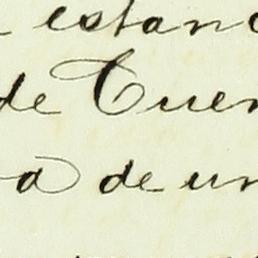 estan
de Cuen
a de un